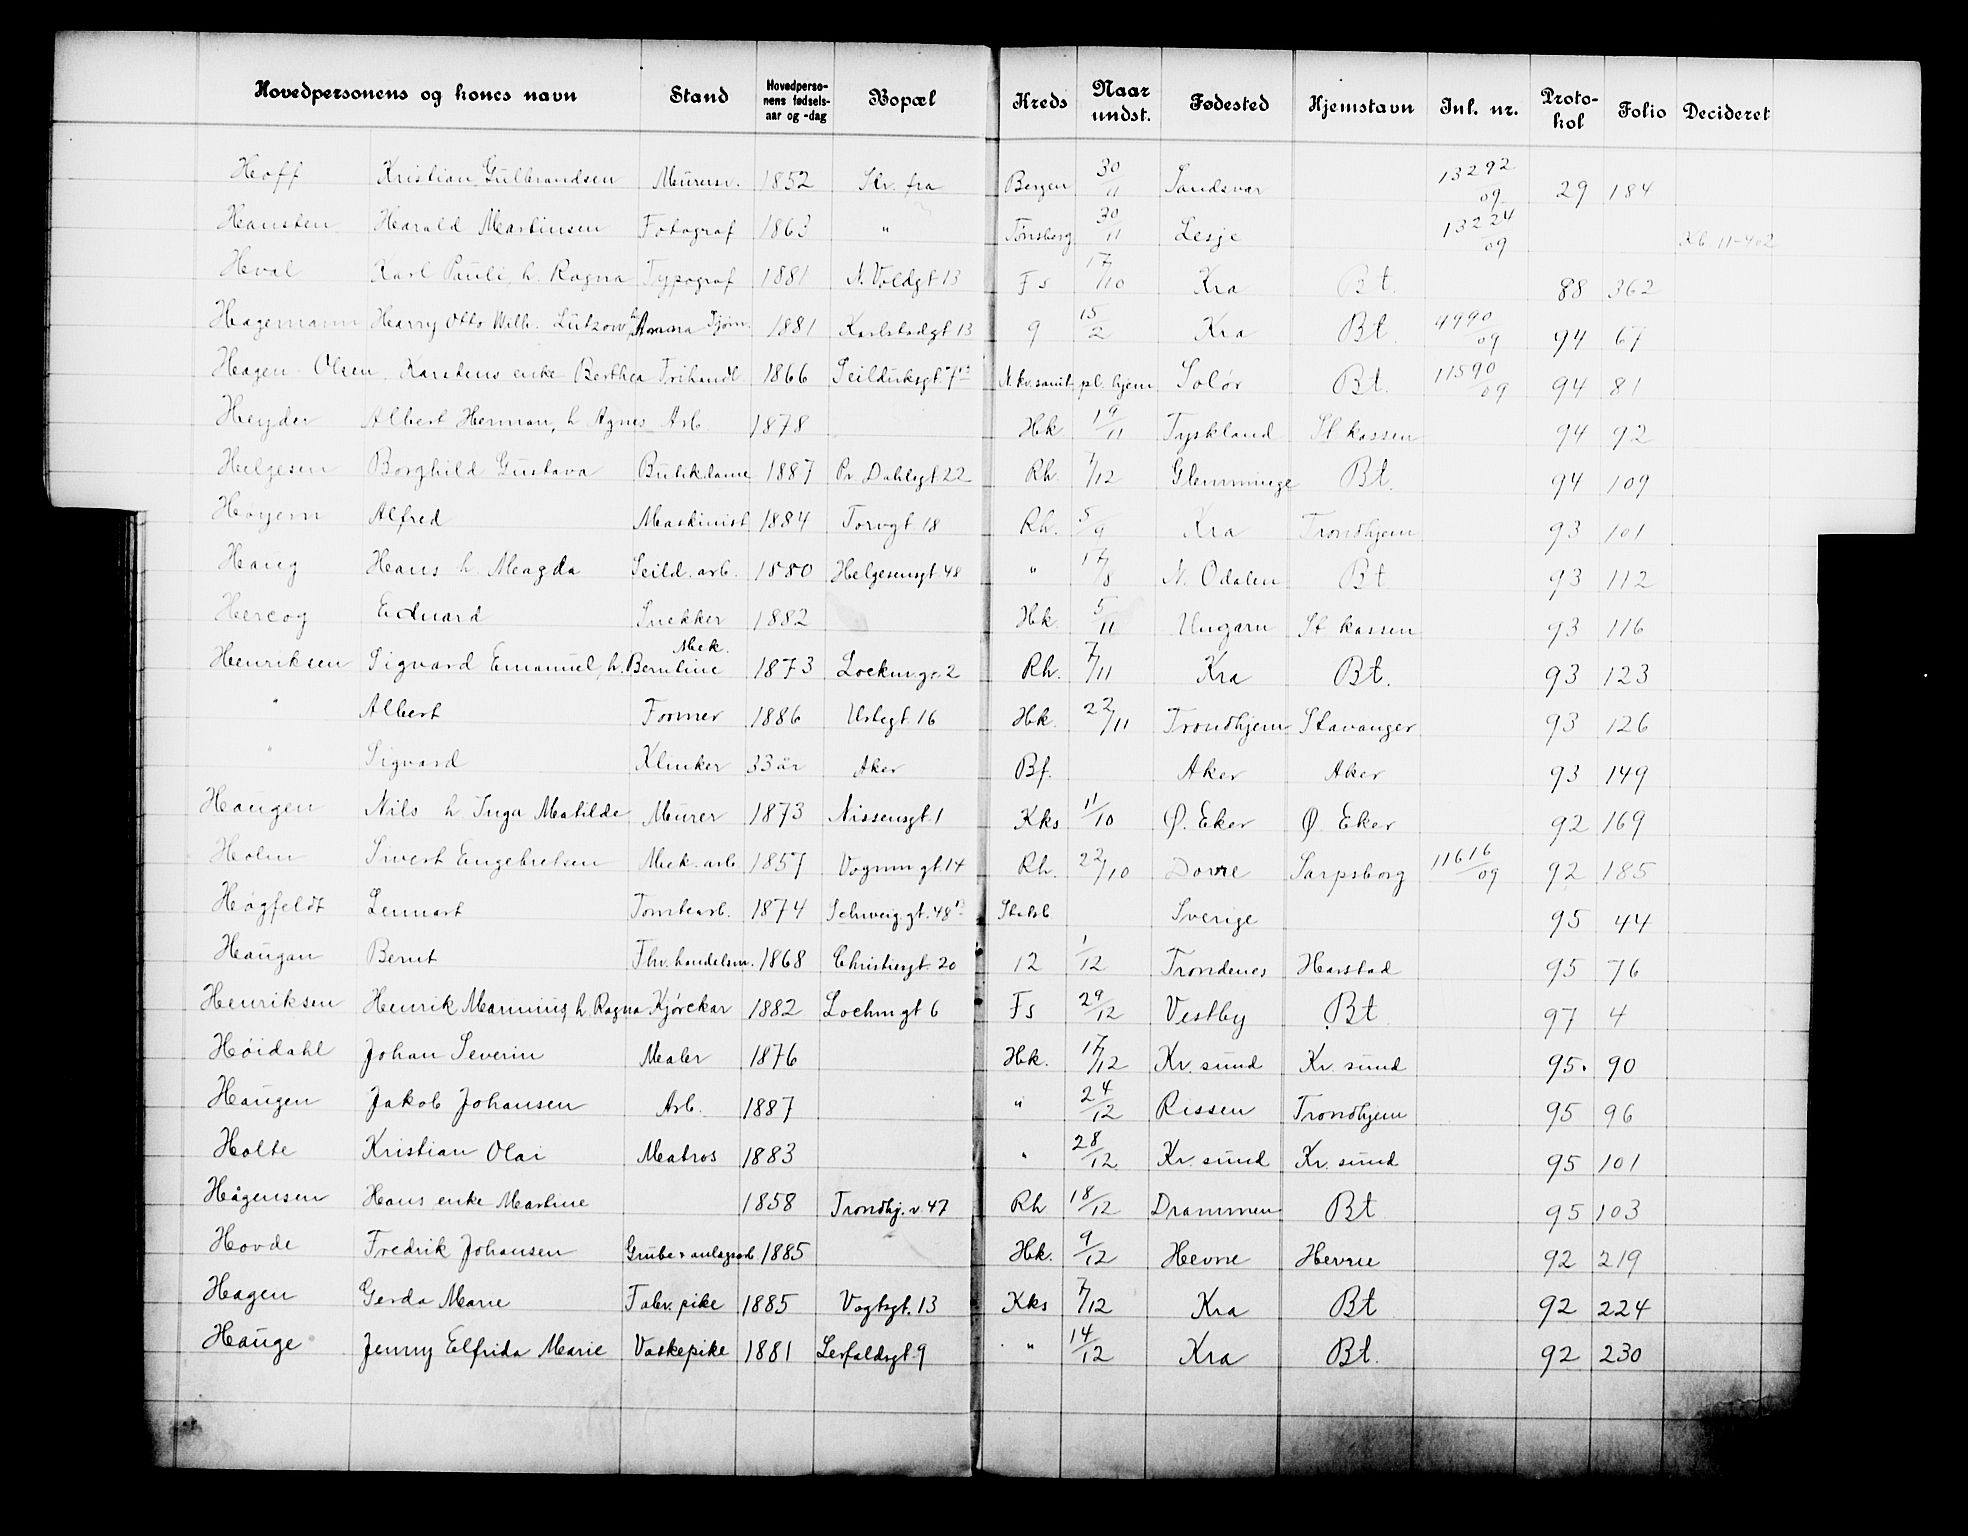 Hovedpersonens og kones navn Stand Hovedperso-nens fødsels-aar og -dag Bopæl Kreds Naar undst. Fødested Hjemstavn Inl. nr. Proto-kol Folio Decideret
Hoff Kristian Gulbrandsen Murersv. 1852 Skr. fra Bergen 30/11 Sandsvær 13292/09 29 184
Hansten Harald Martinsen Fotograf 1863 " Tønsberg 30/11 Lesje 13224/09 Kb. 11-402
Hval Karl Pauli, h. Ragna Typograf 1881 N. Voldgt 13 Fs 17/10 Kra Bt. 88 362
Hagemann Harry Otto Wilh. Lützow h. Anna Tjom. 1881 Karlstadgt 13 9 15/2 Kra Bt. 4990/09 94 67
Hagen-Olsen, Karstens enke Berthea Frihandl. 1866 Seilduksgt 7 N. kv. sanit. pl. hjem Solør Bt. 11590/09 94 81
Heyder Albert Herman, h Agnes Arb. 1878 Hk 19/11 Tyskland St kassen 94 92
Helgesen Borghild Gustava Butikdame 1887 Pr. Dahlsgt 22 Rh. 7/12 Glemminge Bt. 94 109
Høyem Alfred Maskinist 1884 Torvgt 18 Rh. 5/9 Kra Trondhjem 93 101
Haug Hans h. Magda Seild. arb. 1880 Helgesensgt. 48 " 17/8 N. Odalen Bt 93 112
Hercog Eduard Snekker 1882 Hk. 5/11 Ungarn St kassen 93 116
Henriksen Sigvard Emanuel, h. Bernline Mek. 1873 Lockm.gt. 2 Rh. 7/11 Kra Bt. 93 123
" Albert Former 1886 Urtegt. 16 Hk. 22/11 Trondhjem Stavanger 93 126
" Sigvard Klinker 33 år Aker Bf. Aker Aker 93 149
Haugen Nils h Inga Matilde Murer 1873 Nissensgt. 1 Kks 11/10 Ø. Eker Ø. Eker 92 169
Holm Sivert Engebretsen Mek. arb 1857 Vognm gt. 14 Rh. 22/10 Dovre Sarpsborg 11616/09 92 185
Høgfeldt Lennart Tomtearb. 1874 Schweig.gt. 48 Sverige 95 44
Haugan Bernt Fhv. handelsm. 1868 Christiesgt. 20 12 1/12 Trondenes Harstad 95 76
Henriksen Henrik Marinius, h. Ragna Kjørekar 1882 Lochm gt 6 Fs 29/12 Vestby Bt 97 4
Høidahl Johan Severin Maler 1876 Hk. 17/12 Kr. sund Kr. sund 95. 90
Haugen Jakob Johansen Arb. 1887 " 24/12 Rissen Trondhjem 95 96
Holte Kristian Olai Matros 1883 " 28/12 Kr. sund Kr. sund 95 101
Hågensen Hans enke Martine 1858 Trondhj. v. 47 Rh 18/12 Drammen Bt 95 103
Hovde Fredrik Johansen Grube & anlagsarb 1885 Hk. 9/12 Hevne Hevne 92 219
Hagen Gerda Marie Fabr. pike 1885 Vogtsgt. 13 Kks 7/12 Kra Bt 92 224
Hauge Jenny Elfrida Marie Vaskepike 1881 Lerfaldsgt. 9 " 14/12 Kra Bt. 92 230